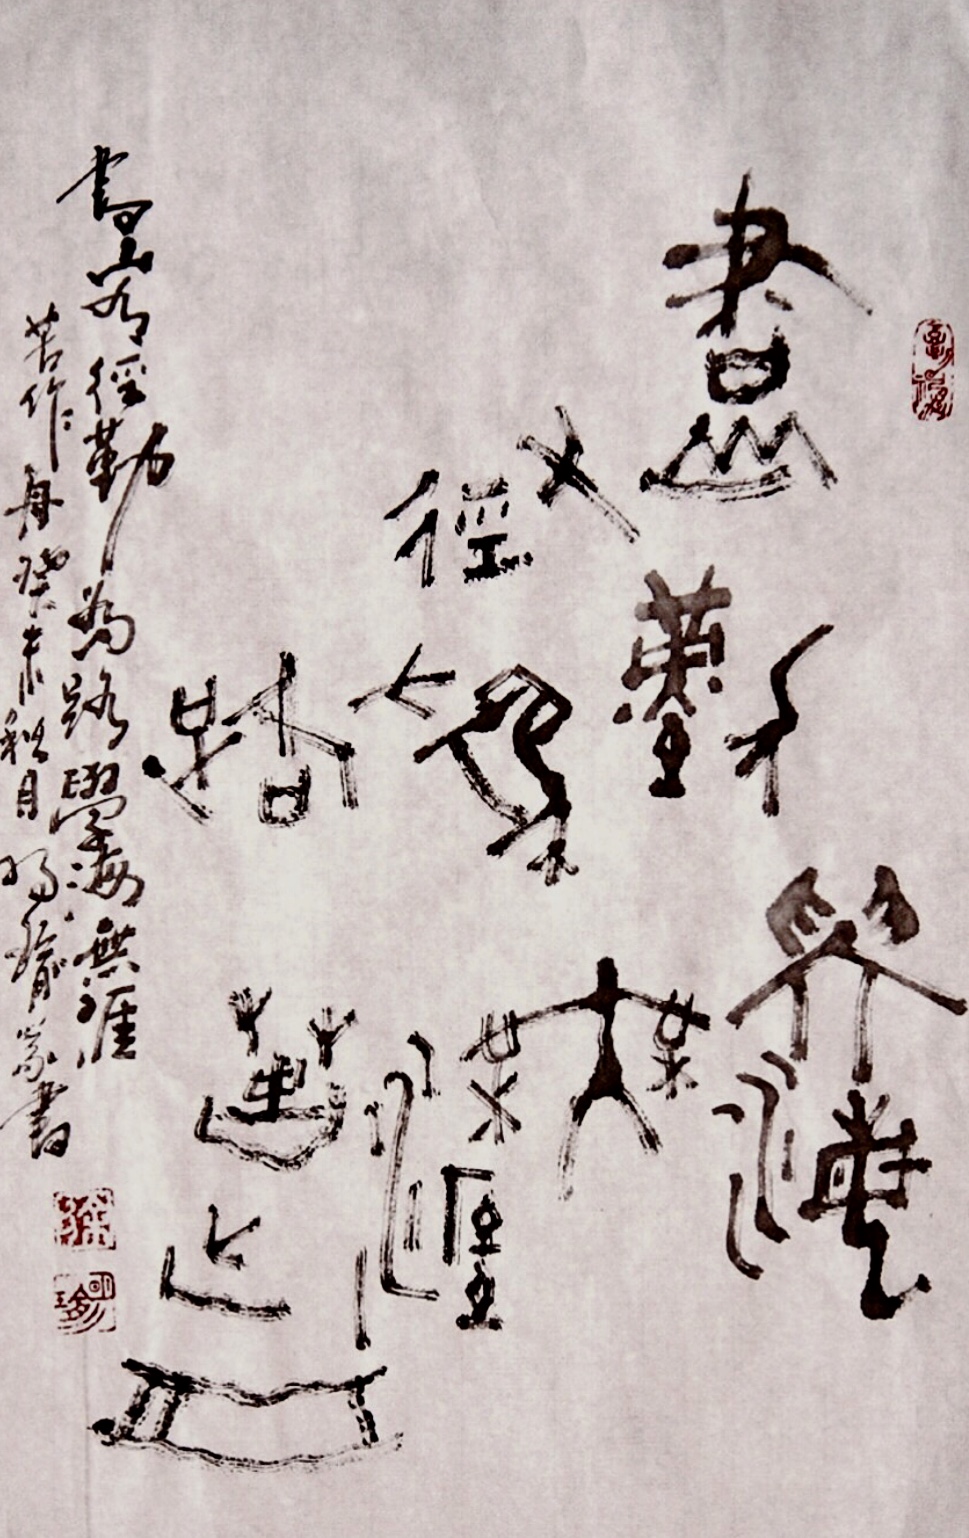 書山有徑勤為路
學海無涯苦作舟
書山有徑勤為路學海無涯
苦作舟癸未秋月瑜篆書